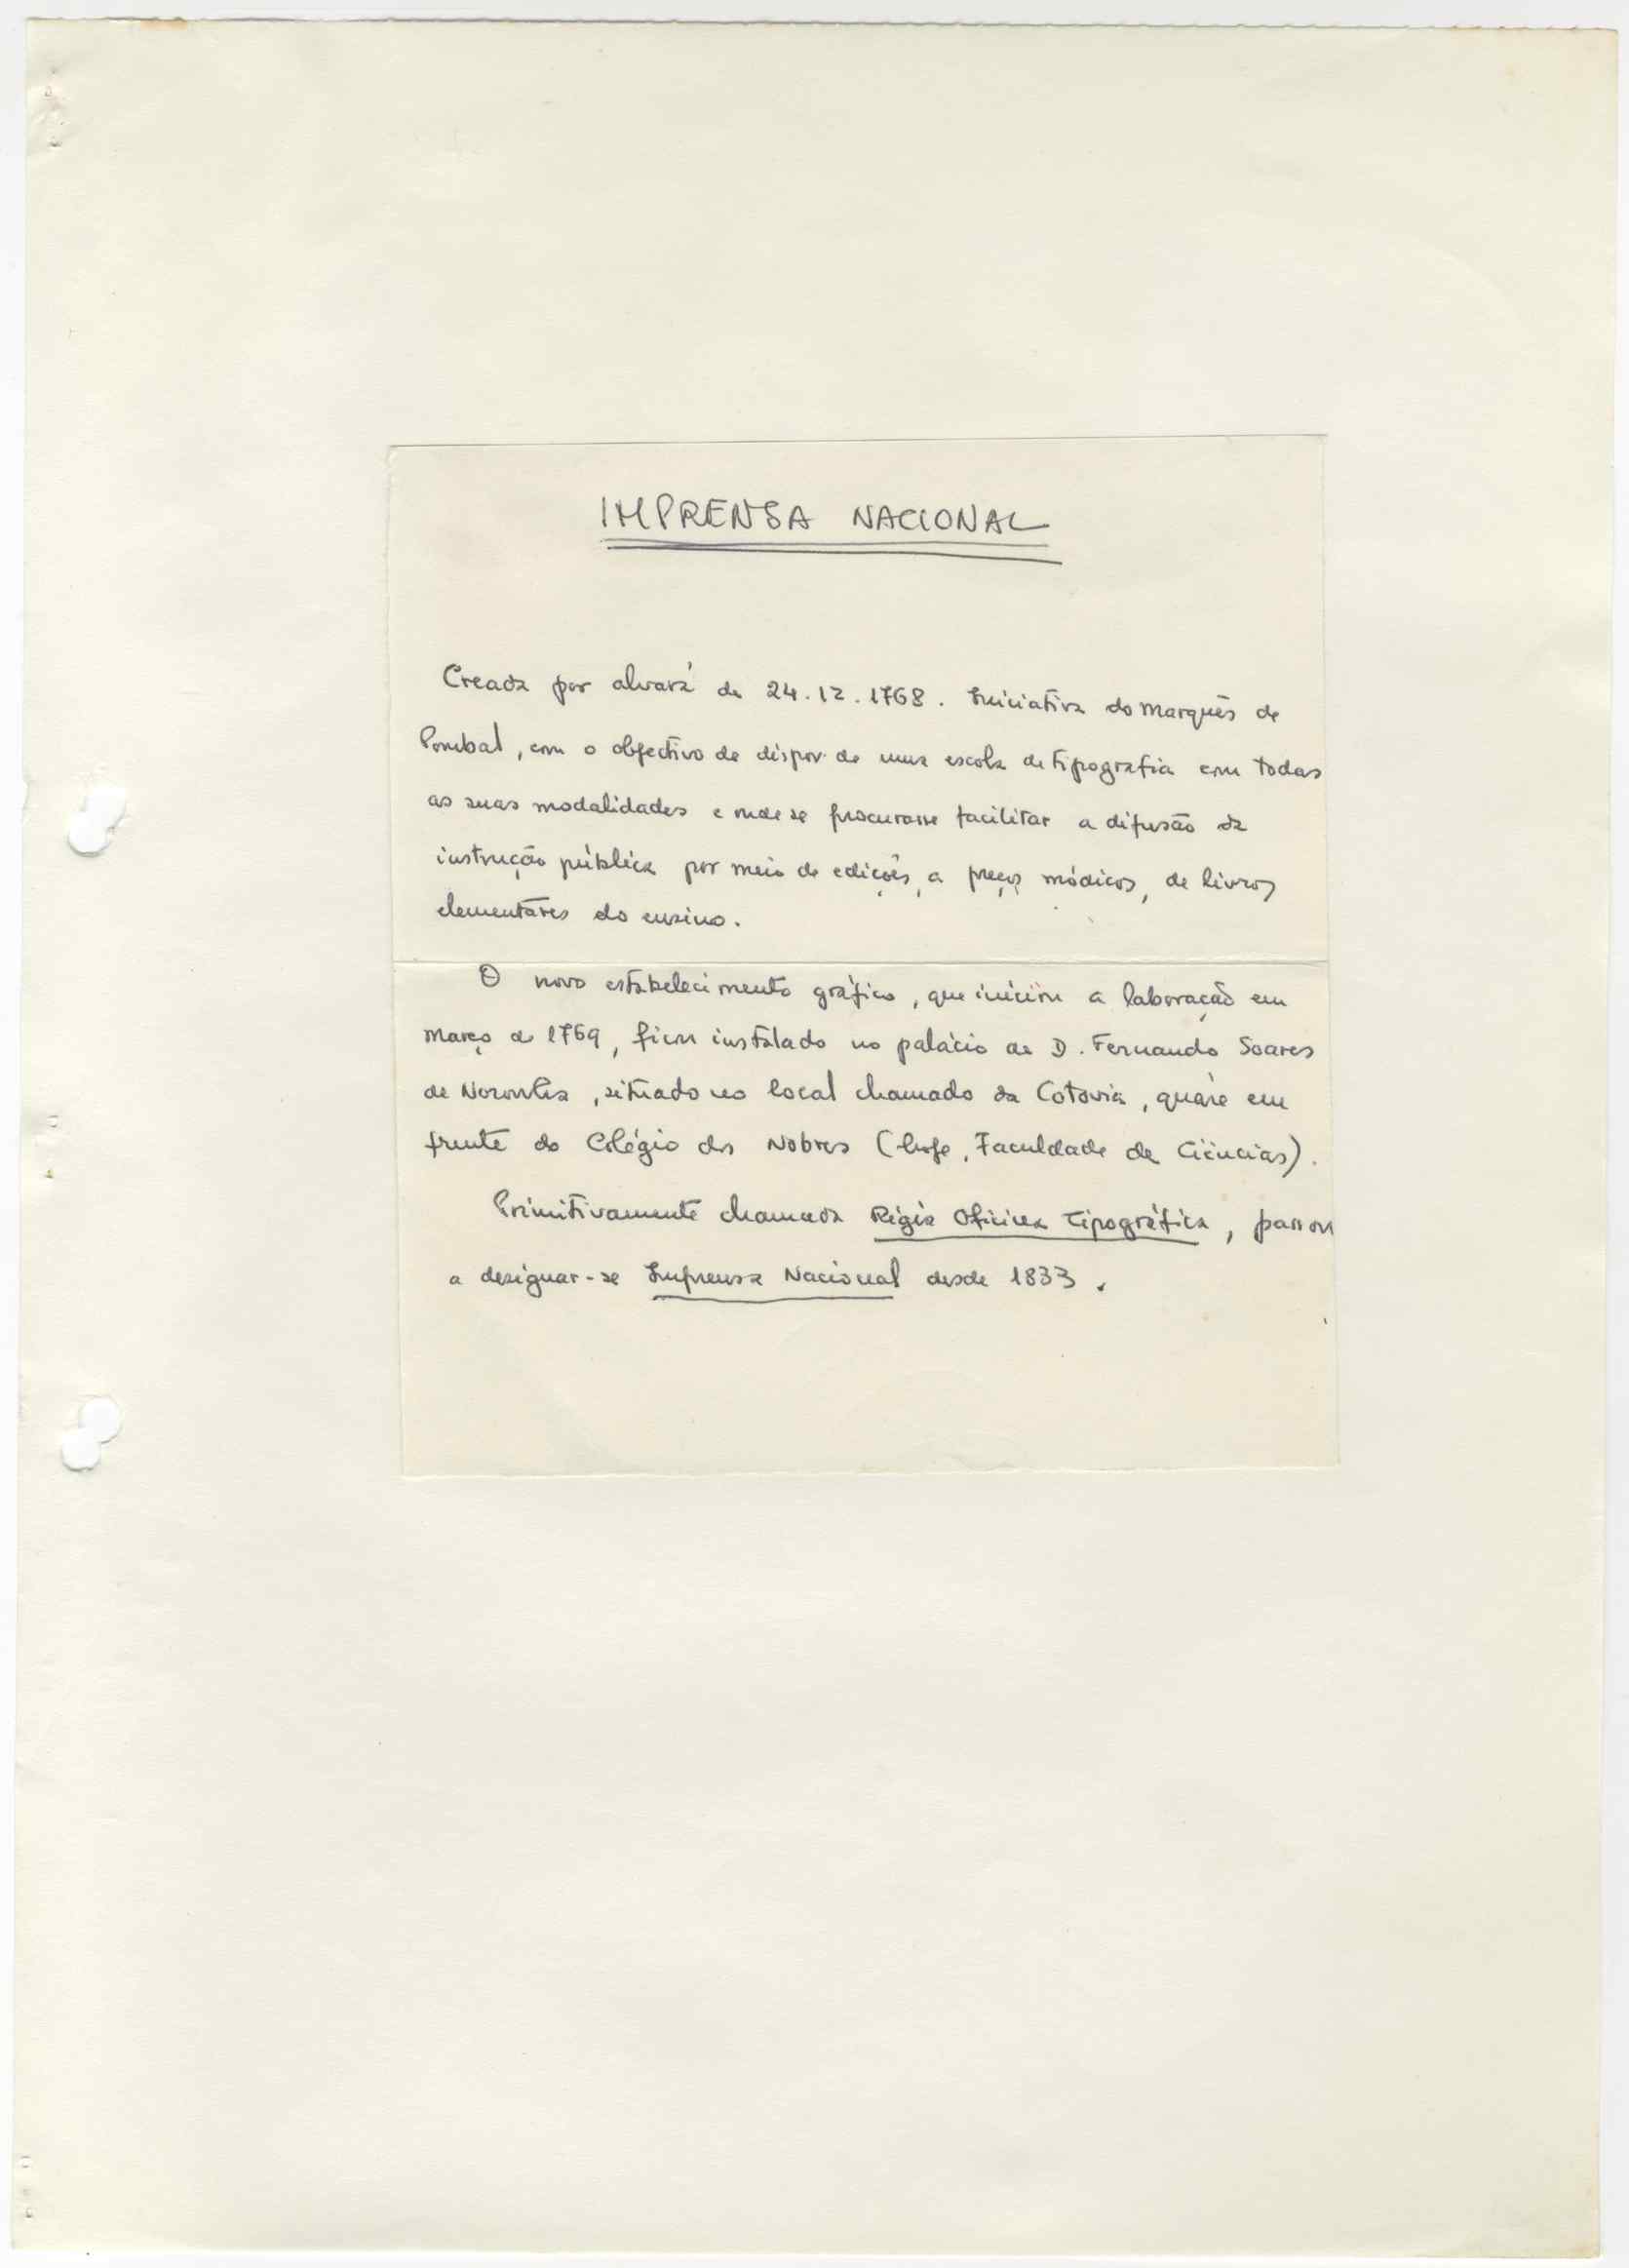 IMPRENSA NACIONAL
Creada por alvará de 24.12.1768. Iniciativa do Marquês de
Pombal, com o objectivo de dispor de uma escola de tipografia com todas
as suas modalidades e onde se procurasse facilitar a difusão da
instrução pública por meio de edições, a preços módicos, de livros
elementares do ensino.
O novo estabelecimento gráfico, que iniciou a laboração em
Março de 1769, ficou instalado no palácio de D. Fernando Soares
de Noronha, situado no local chamado da Cotovia, quase em
frente do Colégio dos Nobres (hoje, Faculdade de Ciências).
Primitivamente chamada Régia Oficina Tipográfica, passou
a designar-se Imprensa Nacional desde 1833.